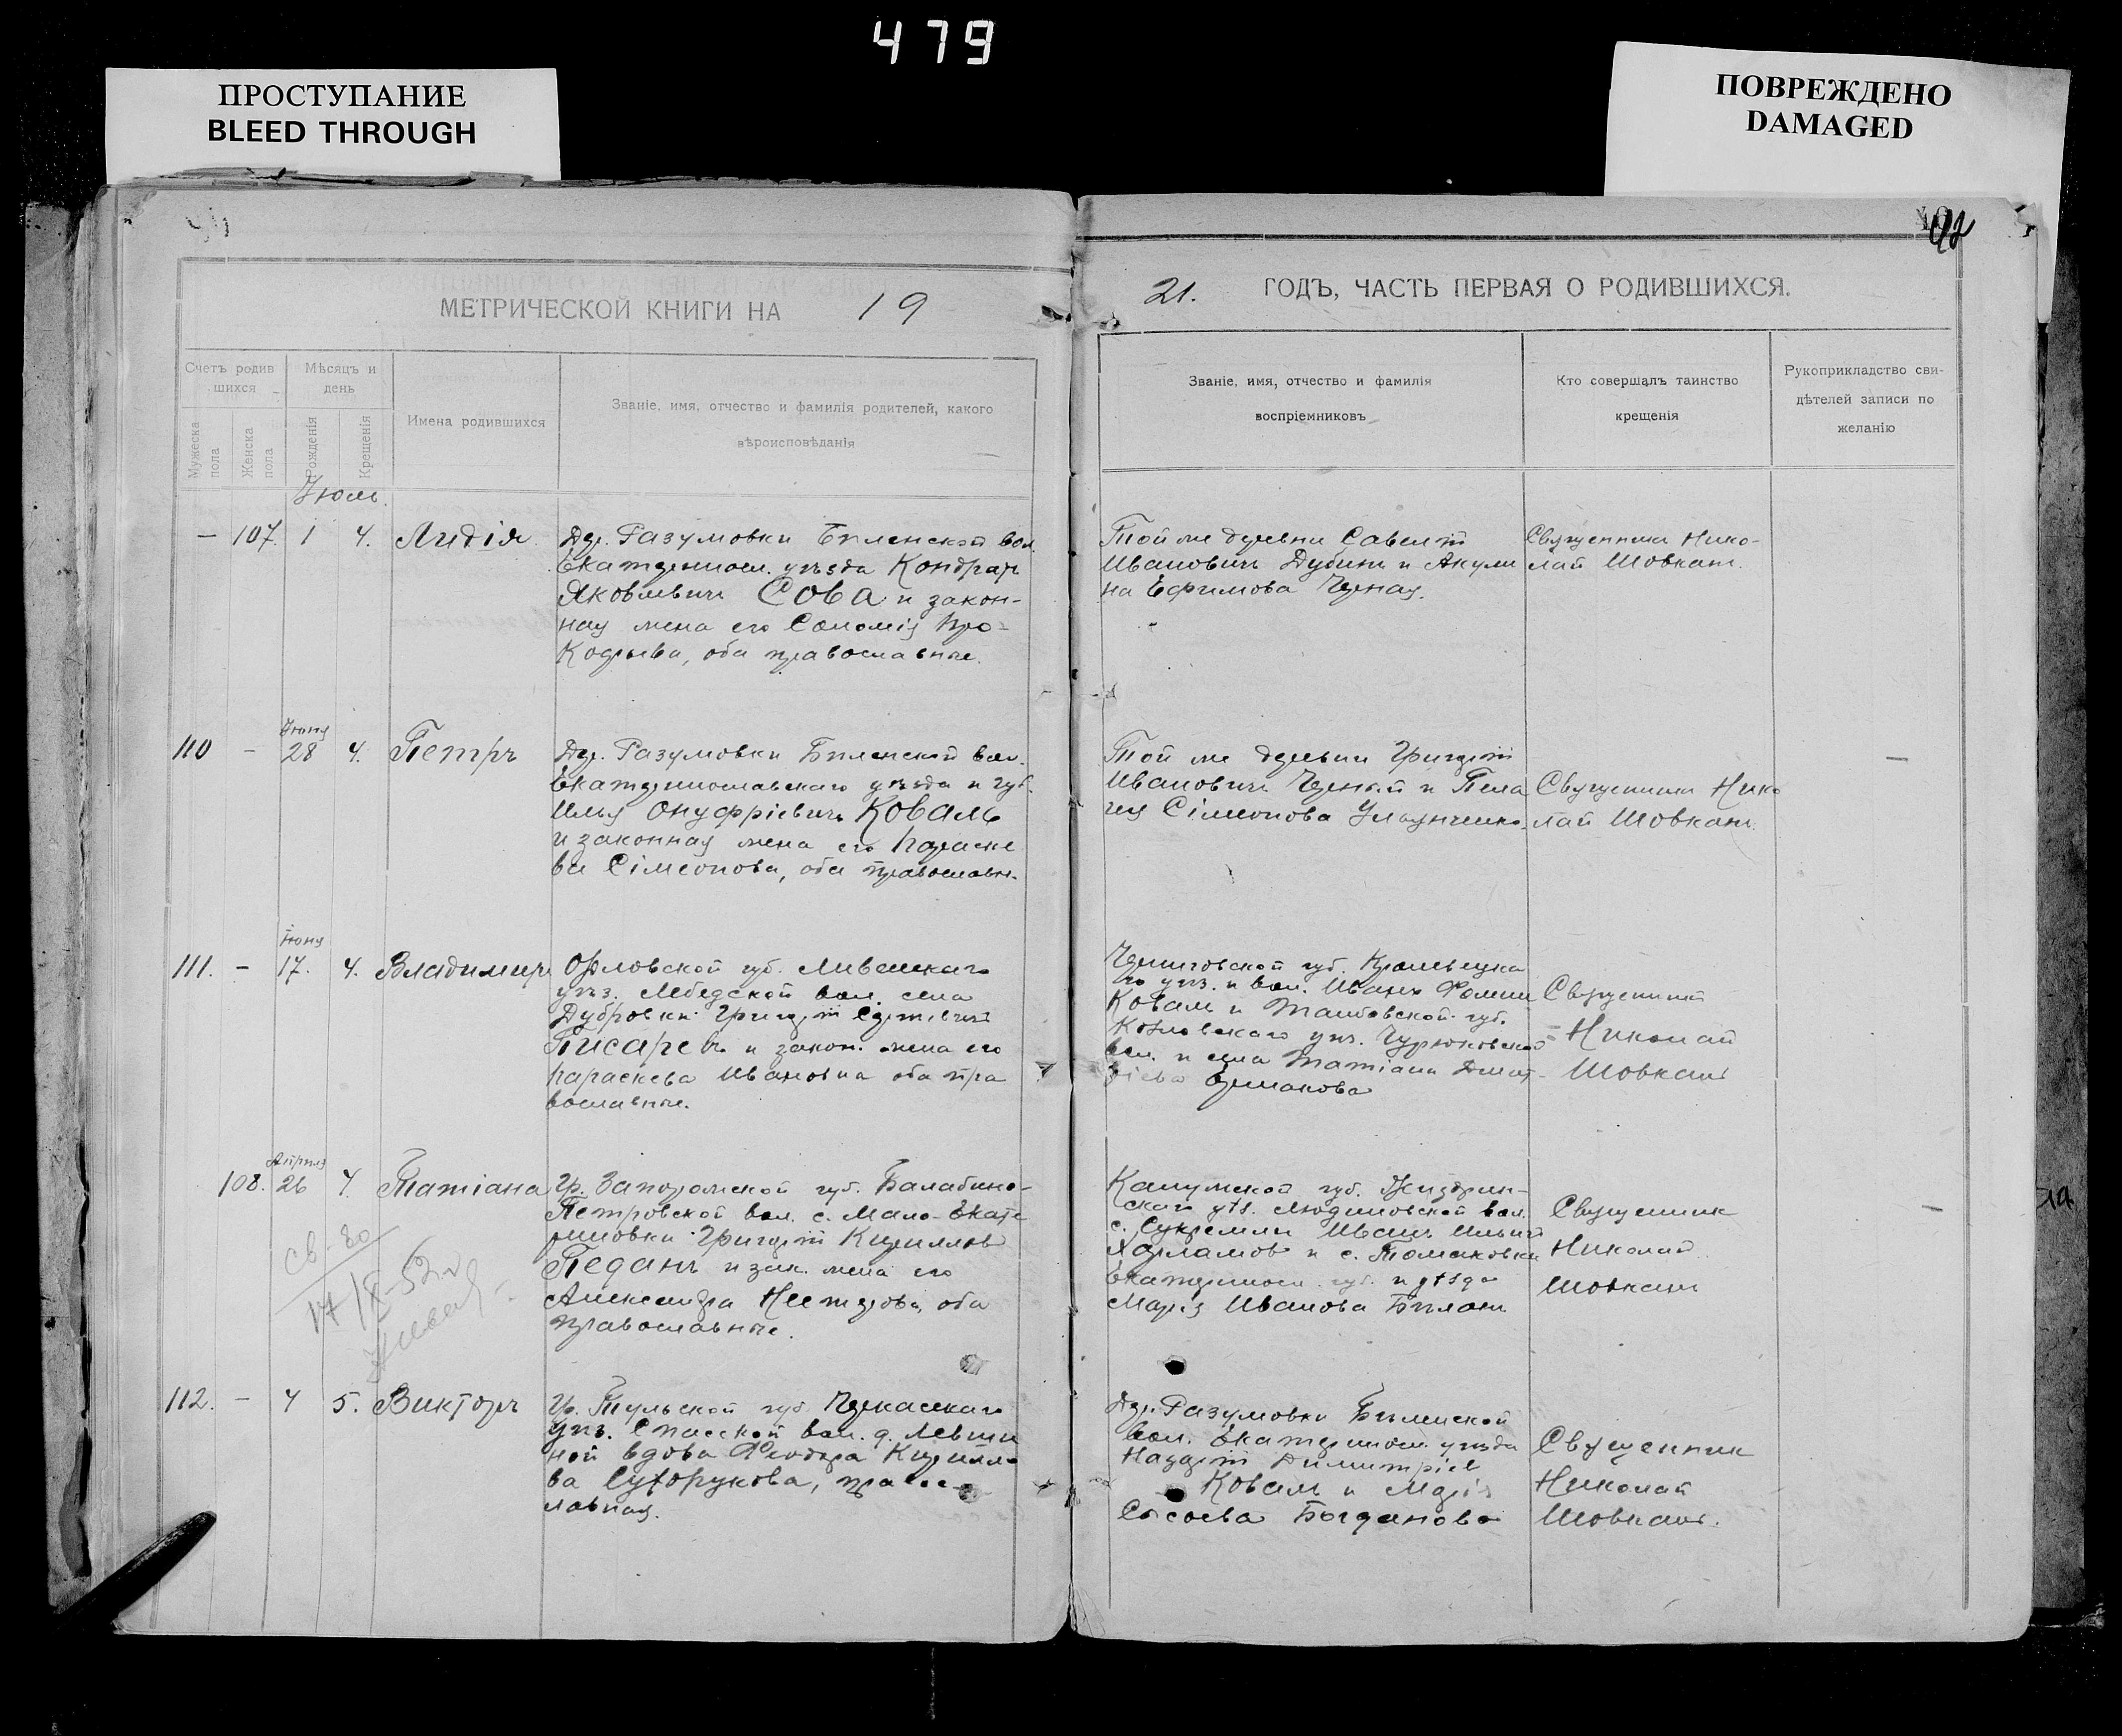 479
ПРОСТУПАНИЕ
BLEED THROUGH
ПОВРЕЖДЕНО
DAMAGED
92
МЕТРИЧЕСКОЙ КНИГИ НА 19
21. ГОДЪ, ЧАСТЬ ПЕРВАЯ О РОДИВШИХСЯ.
Счетъ родив
шихся
Мужеска пола
Женска пола
Мѣсяцъ и
день
Рожденія
Крещенія
Имена родившихся
Званіе, имя, отчество и фамилія родителей, какого
вѣроисповѣданія
Званіе, имя, отчество и фамилія
воспріемниковъ
Кто совершалъ таинство
крещенія
Рукоприкладство сви-
дѣтелей записи по
желанію
Іюль
— 107. 1 4. Лидія
Дер. Разумовки Бѣленской вол.
Екатеринос. уѣзда Кондрат
Яковлевич Сова и закон-
ная жена его Соломія Про-
кофьева, оба православные.
Той же деревни Савелій
Иванович Дубина и Акули
на Ефимова Черная.
Священник Нико-
лай Шовкан.
110 — Іюня 28 4. Петръ
Дер. Разумовки Бѣленской вол.
Екатеринославскаго уѣзда и губ.
Илья Онуфріевичъ Коваль
и законная жена его Параске
ва Сімеонова, оба православн.
Той же деревни Григорій
Иванович Черный и Пела
гея Сімеонова
Священник Нико
лай Шовкан.
—
111. — Іюня 17. 4. Владимиръ
Орловской губ. Ливенскаго
уѣз. вол. села
Дубровки Григорій
Писаревъ и закон. жена его
Параскева Ивановна оба пра
вославные.
Черниговской губ. Кролевецка
го уѣз. и вол. Иванъ Фомин
Коваль и Тамбовской губ.
Козловскаго уѣз.
вол. и села Татіана Дмит
ріева Ермакова
Священник
Николай
Шовкан
108. Апрѣля 26 4. Татіана
Гр. Запорожской губ. Балабино-
Петровской вол. с. Мало-Екате
риновки Григорій Кириллов
Педанъ и зак. жена его
Александра Нестерова, оба
православные.
Св-во
17/IX-52 г
Калужской губ. Жиздрин-
скаго уѣз. Людиновской вол.
с. Сукремли Иванъ Ильичъ
Харламов и с. Томаковки
Екатеринос. губ. и уѣзда
Марія Иванова Бѣлан
Священник
Николай
Шовкан
—
112. — 4 5. Викторъ
Гр. Тульской губ.
уѣз. Спасской вол. д. Левши
ной вдова Феодора Кирилло
ва Сухорукова, правос-
лавная.
Дер. Разумовки Бѣленской
вол. Екатеринос. уѣзда
Назарій Димитріев
Коваль и Марія
Сысоева Богданова
Священник
Николай
Шовкан.